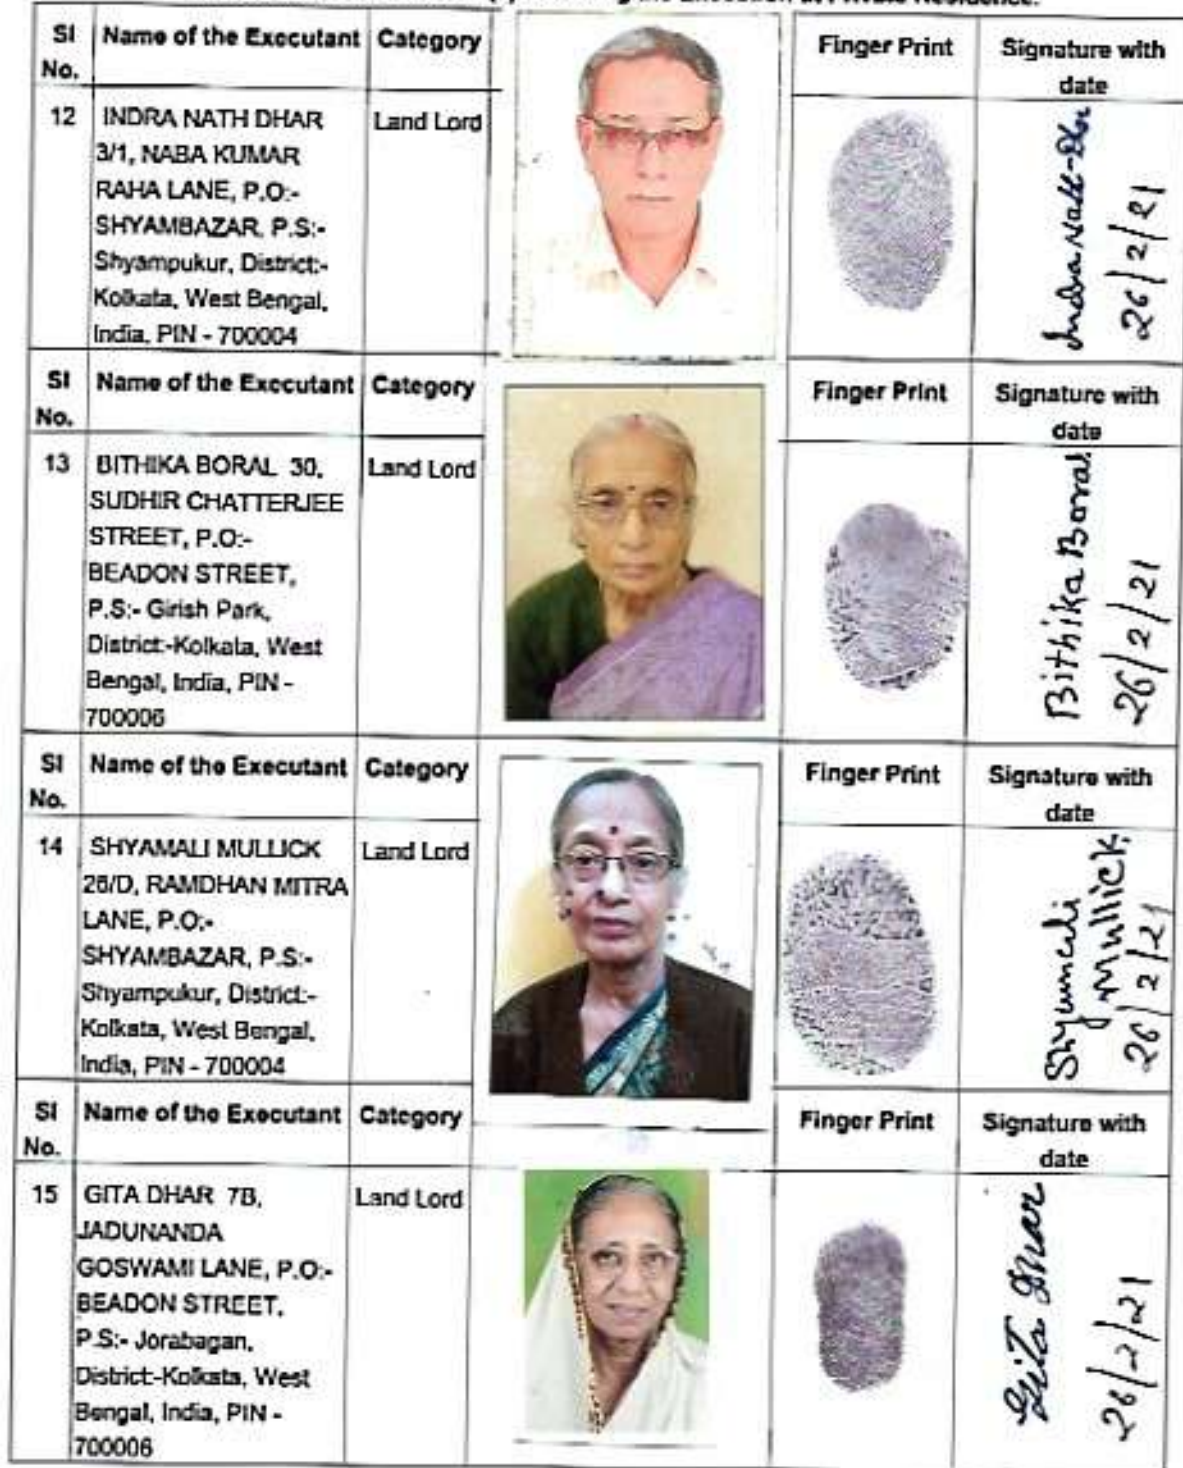 the Execution at Private Residence.
Sl No. Name of the Executant Category Finger Print Signature with date
12 INDRA NATH DHAR
3/1, NABA KUMAR
RAHA LANE, P.O:-
SHYAMBAZAR, P.S:-
Shyampukur, District:-
Kolkata, West Bengal,
India, PIN - 700004
Land Lord
Indra Nath Dhar
26/2/21
Sl No. Name of the Executant Category Finger Print Signature with date
13 BITHIKA BORAL 30,
SUDHIR CHATTERJEE
STREET, P.O:-
BEADON STREET,
P.S:- Girish Park,
District:-Kolkata, West
Bengal, India, PIN -
700006
Land Lord
Bithika Boral
26/2/21
Sl No. Name of the Executant Category Finger Print Signature with date
14 SHYAMALI MULLICK
26/D, RAMDHAN MITRA
LANE, P.O:-
SHYAMBAZAR, P.S:-
Shyampukur, District:-
Kolkata, West Bengal,
India, PIN - 700004
Land Lord
Shyamali
Mullick
26/2/21
Sl No. Name of the Executant Category Finger Print Signature with date
15 GITA DHAR 7B,
JADUNANDA
GOSWAMI LANE, P.O:-
BEADON STREET,
P.S:- Jorabagan,
District:-Kolkata, West
Bengal, India, PIN -
700006
Land Lord
Gita Dhar
26/2/21